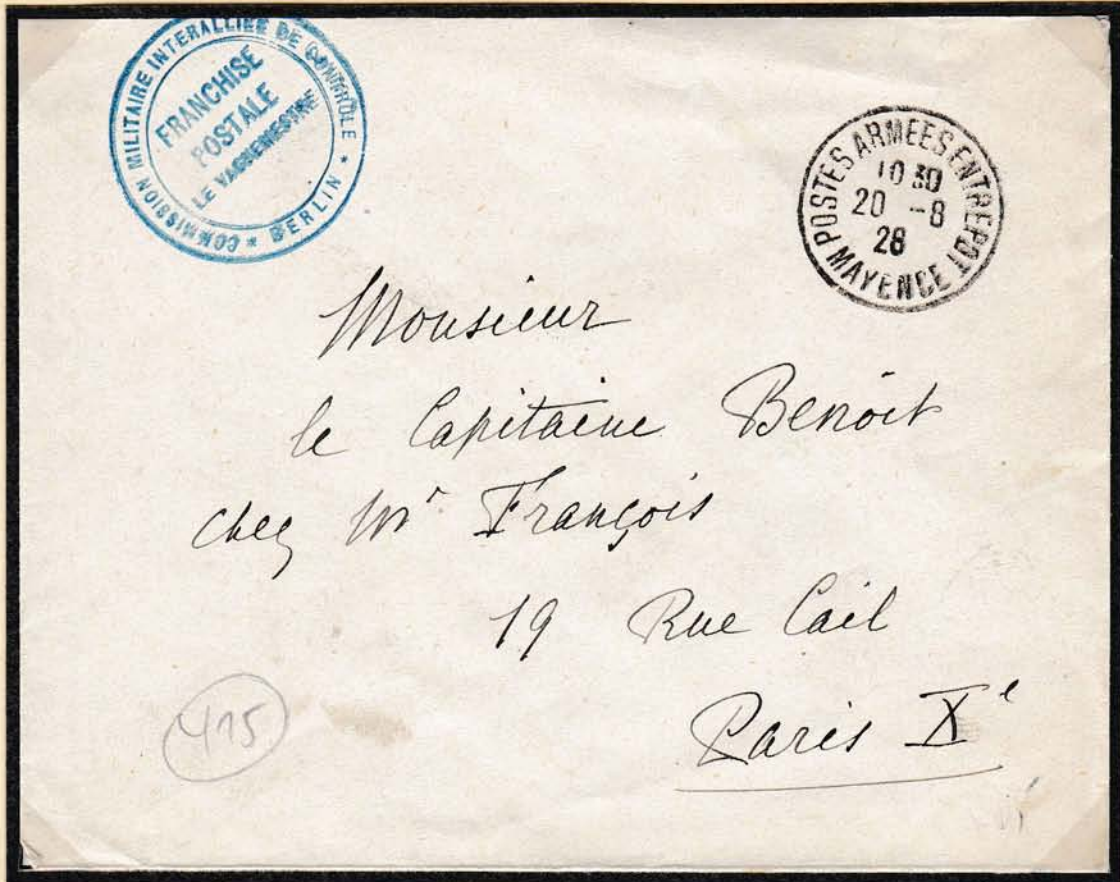 COMMISSION MILITAIRE INTERALLIÉE DE CONTRÔLE * BERLIN *
FRANCHISE
POSTALE
LE VAGUEMESTRE
POSTES ARMEES ENTREPOT
10 30
20 -8
26
MAYENCE
Monsieur
le Capitaine Benoit
chez Mr François
19 Rue Cail
Paris Xe
415